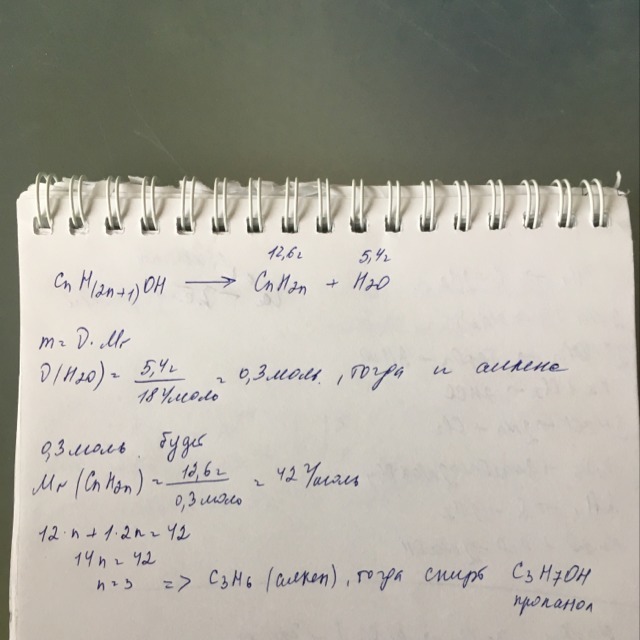 12,6г 5,4г
CnH(2n+1)OH → CnH2n + H2O
m = D · Mr
D(H2O) = 5,4г / 18 г/моль = 0,3 моль, тогда и алкена
0,3 моль будет
Mr (CnH2n) = 12,6г / 0,3 моль = 42 г/моль
12·n + 1·2n = 42
14n = 42
n = 3 => C3H6 (алкен), тогда спирт C3H7OH
пропанол